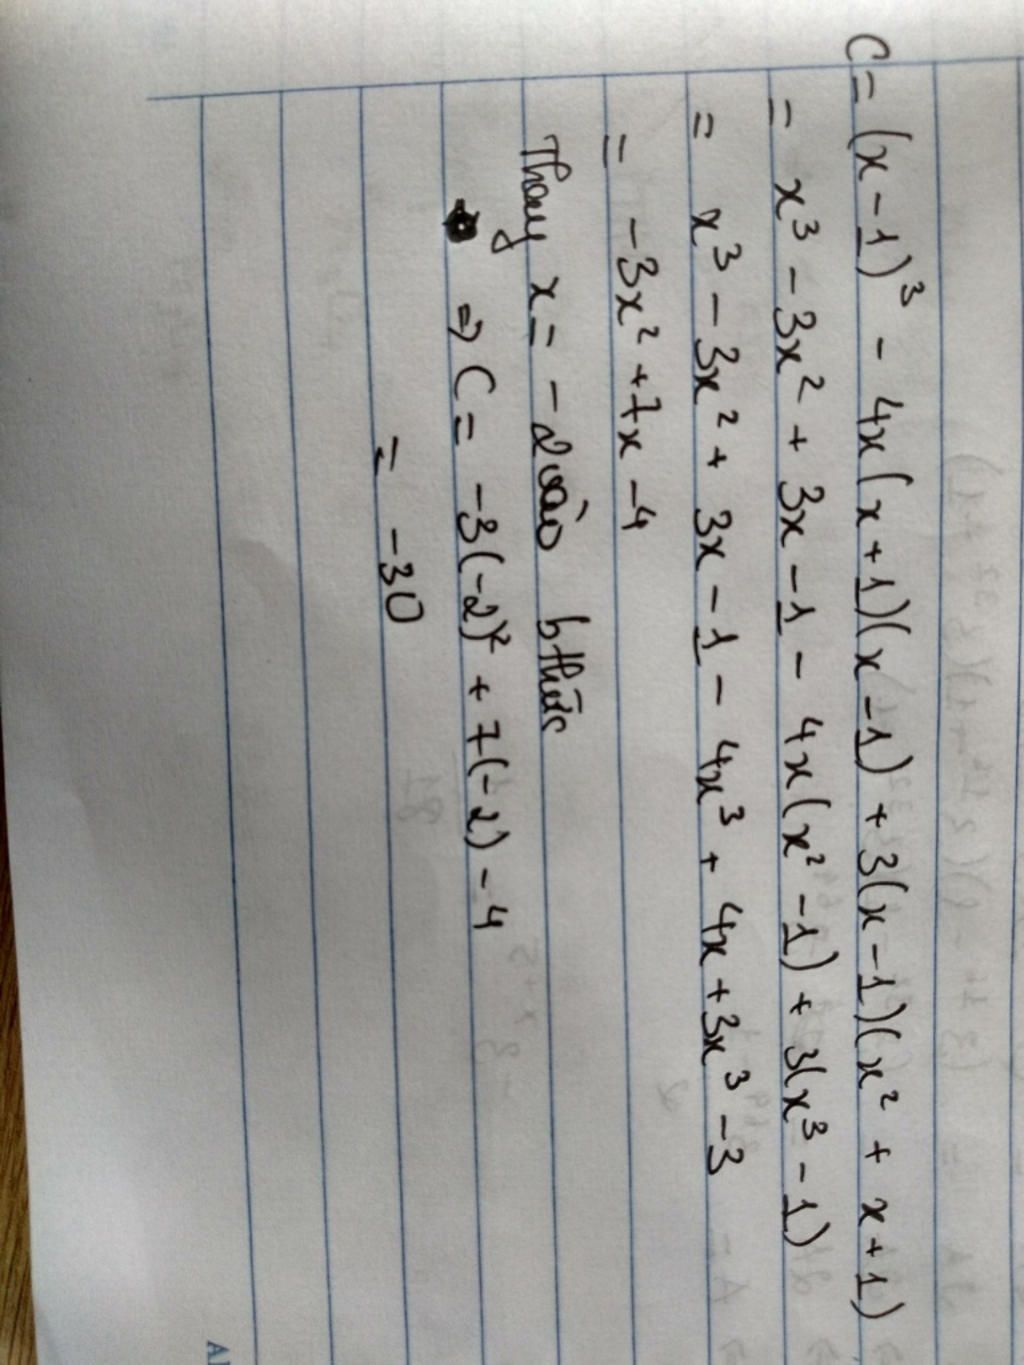 C = (x - 1)³ - 4x(x + 1)(x - 1) + 3(x - 1)(x² + x + 1)
= x³ - 3x² + 3x - 1 - 4x(x² - 1) + 3(x³ - 1)
= x³ - 3x² + 3x - 1 - 4x³ + 4x + 3x³ - 3
= -3x² + 7x - 4
Thay x = -2 vào bthức
⇒ C = -3(-2)² + 7(-2) - 4
= -30